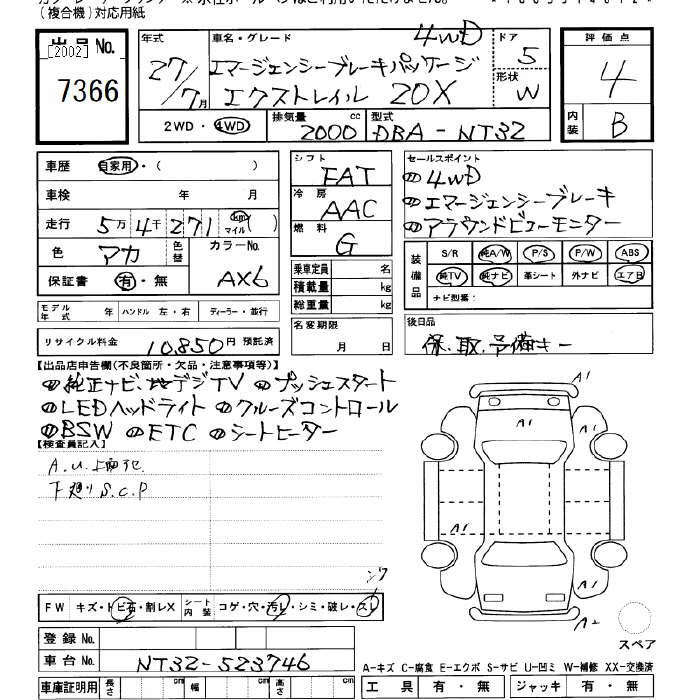 (複合機)対応用紙
出品No.
[2002]
7366
年式 車名・グレード 4WD ドア 5
27/7月 エマージェンシーブレーキパッケージ
エクストレイル 20X 形状 W
評価点 4
内装 B
2WD・4WD 排気量 2000 cc 型式 DBA-NT32
車歴 自家用・( )
車検 年 月
走行 5万4千271 km マイル ( )
色 アカ 色替 カラーNo. AX6
保証書 有・無
モデル年式 年 ハンドル 左・右 ディーラー・並行
リサイクル料金 10,850円 預託済
シフト FAT
冷房 AAC
燃料 G
乗車定員 名
積載量 kg
総重量 kg
名変期限 月 日
セールスポイント
4WD
エマージェンシーブレーキ
アラウンドビューモニター
装備品 S/R 純A/W P/S P/W ABS
純TV 純ナビ 革シート 外ナビ エアB
ナビ型番:
後日品
保、取、予備キー
【出品店申告欄(不良箇所・欠品・注意事項等)】
純正ナビ 地デジTV プッシュスタート
LEDヘッドライト クルーズコントロール
BSW ETC シートヒーター
【検査員記入】
下廻り S.C.P
A1
A1
A1
A1
A1
A2
FW キズ・トビ石・割レX シート内装 コゲ・穴・汚レ・シミ・破レ・スレ
登録No.
車台No. NT32-523746
車庫証明用 長さ cm 幅 cm 高さ cm
スペア
A-キズ C-腐食 E-エクボ S-サビ U-凹ミ W-補修 XX-交換済
工具 有・無 ジャッキ 有・無